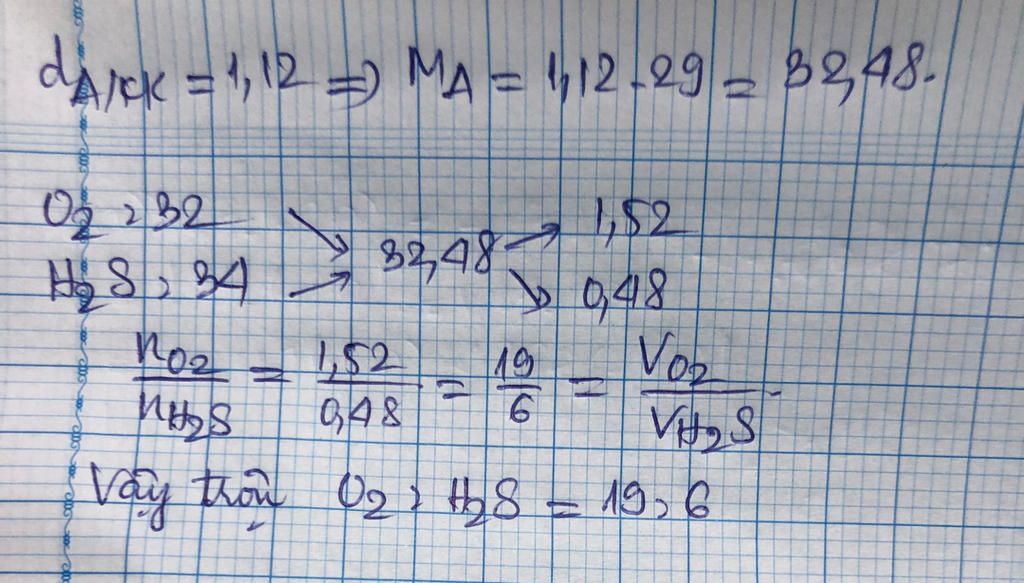 dA/KK = 1,12 => MA = 1,12 . 29 = 32,48.
O2 : 32 ↘ ↗ 1,52
32,48
H2S : 34 ↗ ↘ 0,48
nO2/nH2S = 1,52/0,48 = 19/6 = VO2/VH2S.
Vậy trộn O2 : H2S = 19 : 6